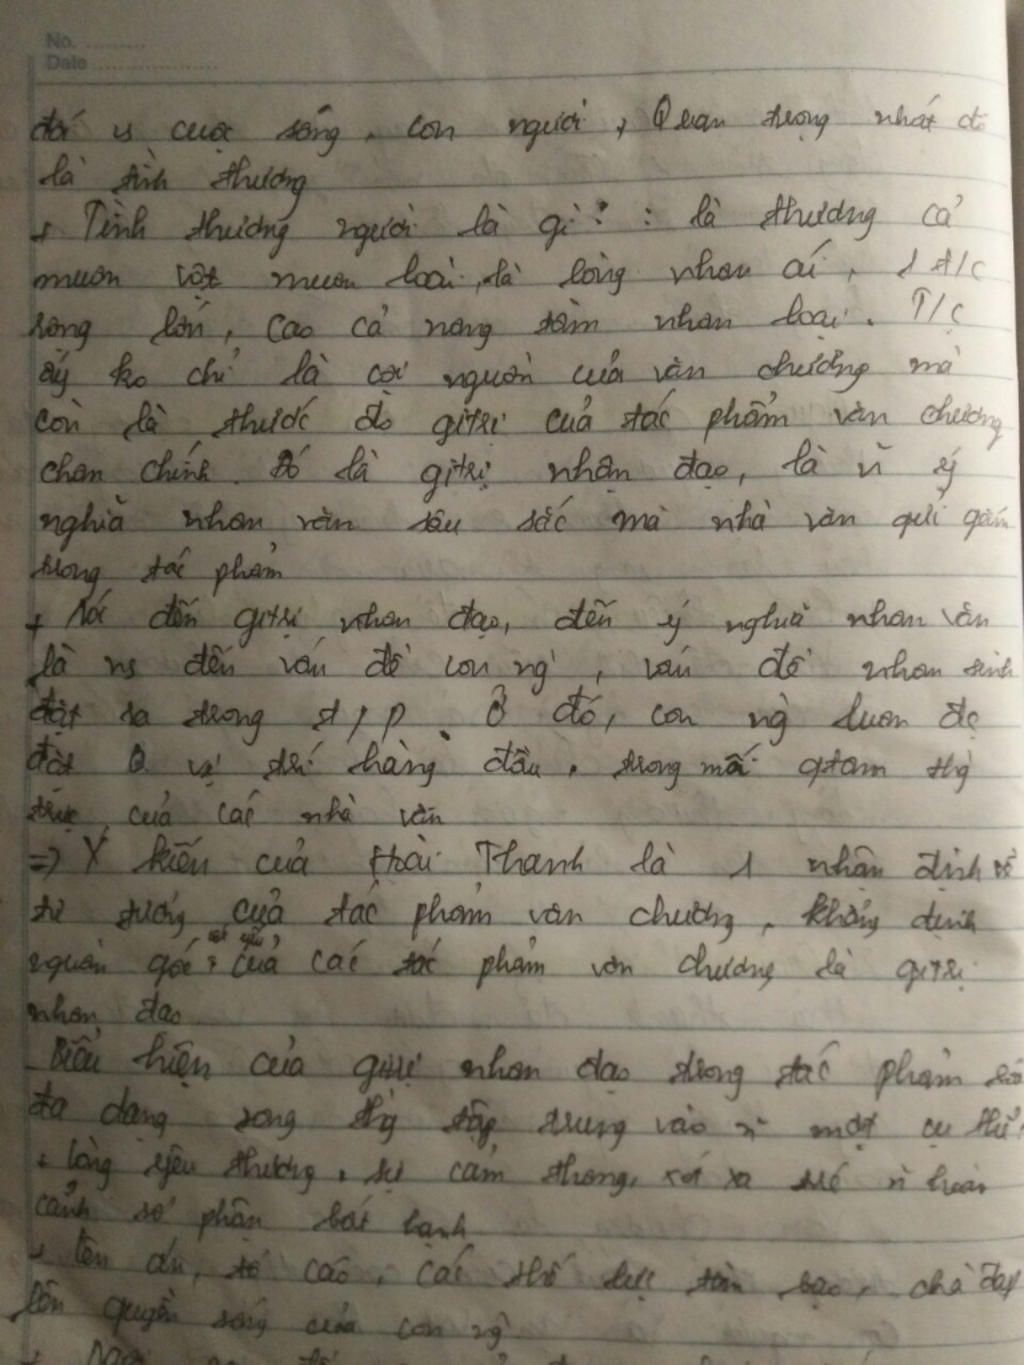 No. ..........
Date ..................
đối vs cuộc sống, con người, Quan trọng nhất đó
là tình thương
+ Tình thương người là gì? : là thương cả
muôn vật muôn loài, là lòng nhân ái, 1 t/c
rộng lớn, cao cả nâng tầm nhân loại. T/c
ấy ko chỉ là cội nguồn của văn chương mà
còn là thước đo gitrị của tác phẩm văn chương
chân chính. Đó là gitrị nhân đạo, là ~ ý
nghĩa nhân văn sâu sắc mà nhà văn gửi gắm
trong tác phẩm
+ Nói đến gitrị nhân đạo, đến ý nghĩa nhân văn
là ns đến vấn đề con ng', vấn đề nhân sinh
đặt ra trong t/p. Ở đó, con ng luôn đc
đặt ở vị trí hàng đầu, trong mối qtâm thg
trực của các nhà văn
=> Ý kiến của Hoài Thanh là 1 nhận định về
tư tưởng của tác phẩm văn chương, khẳng định
nguồn gốc cốt yếu của các tác phẩm văn chương là gitrị
nhân đạo
Biểu hiện của gitrị nhân đạo trong tác phẩm
đa dạng song thg tập trung vào ~ một cụ thể:
+ lòng yêu thương, sự cảm thông, xót xa ~ hoàn
cảnh số phận bất hạnh
+ lên án, tố cáo, các thế lực tàn bạo, chà đạp
lên quyền sống của con ng